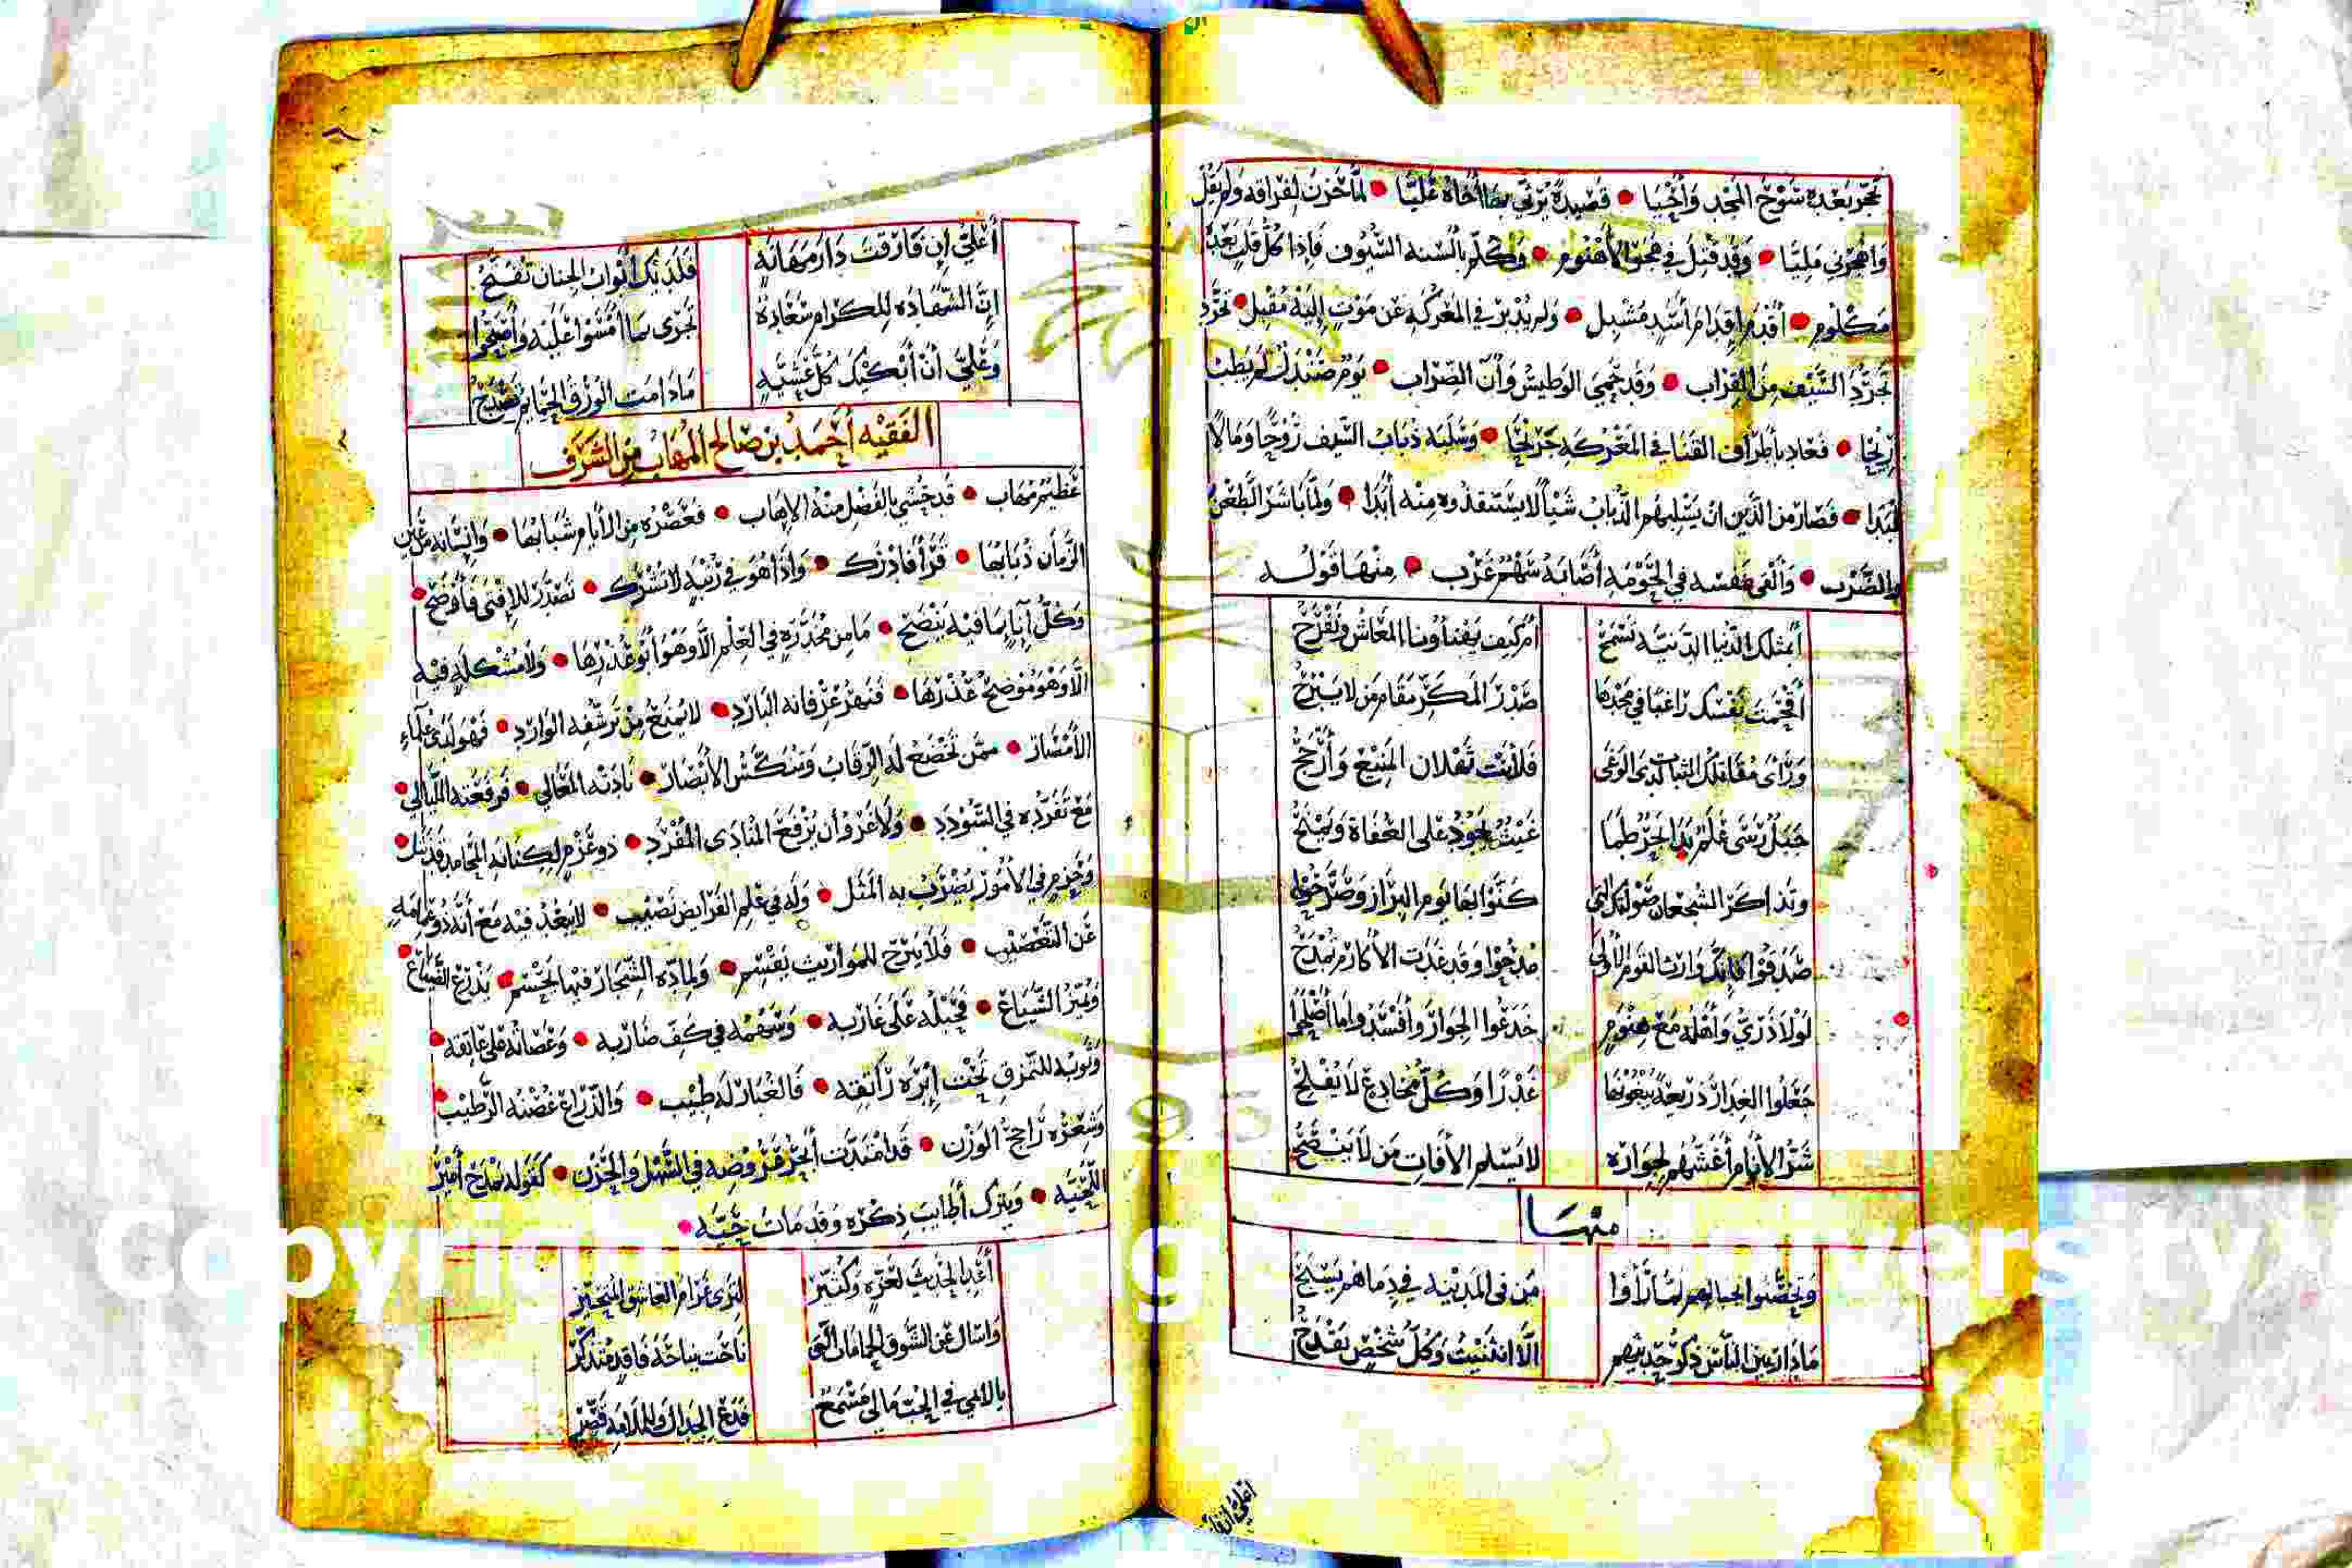 تجر بعده سوح المجد وأحيا • قصيدة يرثي بها أخاه عليا • لما حزن لفراقه ولم يقل
واهجرني مليا • وقد قتل في هجو الأهنوم • وكلم بألسنة السيوف فإذا كل قلب بعده
مكلوم • أقدم إقدام أسد مشبل • ولم يدبر في المعركة عن موت إليه مقبل • تجرد
تجرد السيف من القراب • وقد حمي الوطيس وآن الضراب • يوم صندل لم يطب
ريحا • فعاد بأطراف القنا في المعركة جريحا • وسلبه ذباب السيف روحا ومالا
لبدا • فصار من الذين ان يسلبهم الذباب شيأ لا يستنقذوه منه أبدا • ولما باشر الطعن
والضرب • وألقى بنفسه في الحومة أصابه سهم غرب • منها قوله
أبمثلك الدنيا الدنية تسمح أم كيف يهنأ ونا المعاش ونفرح
أقحمت نفسك راغبا في مجدها صدر المكر مقام من لا يبرح
ورأى مقاتلك الثبات لدى الوغى فلأنت ثهلان المنيع وأرجح
جبل رسى علم بدا بحر طما غيث يجود على العفاة ويمنح
وتذاكر الشجعان صولتك التي كنوا بها يوم البراز وصرحوا
صدقوا فإنك وارث القوم الأولى مدحوا وقد غدت الأكارم تمدح
لولا ذري وأهله مع هنوم خدعوا الجوار وأفسدوا ما أصلحوا
جعلوا الغدار ذريعة يبغونها غدرا وكل مخادع لا يفلح
شر الأنام أغشهم لجواره لا يسلم الآفات من لا ينصح
منها
وتحصنوا بجبالهم لما رأوا من في المدينة في دماهم يسبح
ما دار بين الناس ذكر حديثهم الا انثنيت وكل شخص يقدح
أعلي إن فارقت
أعلي إن فارقت دار مهانة فلديك أبواب الجنان تفتح
إن الشهادة للكرام سعادة تجرى بما أمسوا عليه وأصبحوا
وعلي أن أبكيك كل عشية ما دامت الورق الحمايم تصدح
الفقيه أحمد بن صالح المهاب من الشرف
عظيم مهاب • قد حشي بالفضل منه الإهاب • فعصره من الأيام شبابها • وإنسانه من عين
الزمان ذبابها • قرأ فأدرك • وإذا هو في رتبة لا تشرك • تصدر للإفتى فأوضح •
وكل آناء بما فيه ينضح • ما من مخدرة في العلم الا وهو أبو عذرها • ولا مشكلة فيه
الا وهو موضح عذرها • فنهر عرفانه البارد • لا يمنع من ترشفه الوارد • فهو لدى علماء
الأمصار • ممن تخضع له الرقاب وتنكس الأبصار • نادته المعالي • فرفعته الليالي •
مع تفرده في السودد • ولا غرو أن يرفع المنادى المفرد • ذو عزم لكنانة المحامد قد نثل •
وحزم في الأمور يضرب به المثل • وله في علم الفرايض نصيب • لا يبعد فيه مع أنه ذو عمامه
عن التعصيب • فلا يبرح للمواريث يقسم • ولمادة الشجار فيها يحسم • يذرع الضياع •
ويميز الشياع • فحبله على غاربه • وسهمه في كف ضاربه • وعصاته على عاتقه •
وثوبه للتمزق تحت إبره راتقه • فالغبار له طيب • والذراع غصنه الرطيب •
وشعره راجح الوزن • قد امتدت أبحر عروضه في السهل والحزن • كقوله يمدح أمير
اللحية • ويترك أطايب ذكره وقد مات حية •
أعد الحديث لعزة وكثير لترى غرام العاشق المتحير
واسأل عن الشوق الحمامات التي ناحت نياحة فاقد متذكر
يا لايمي في الحب ما لي مسمع فدع الجدال وللملامة قصر